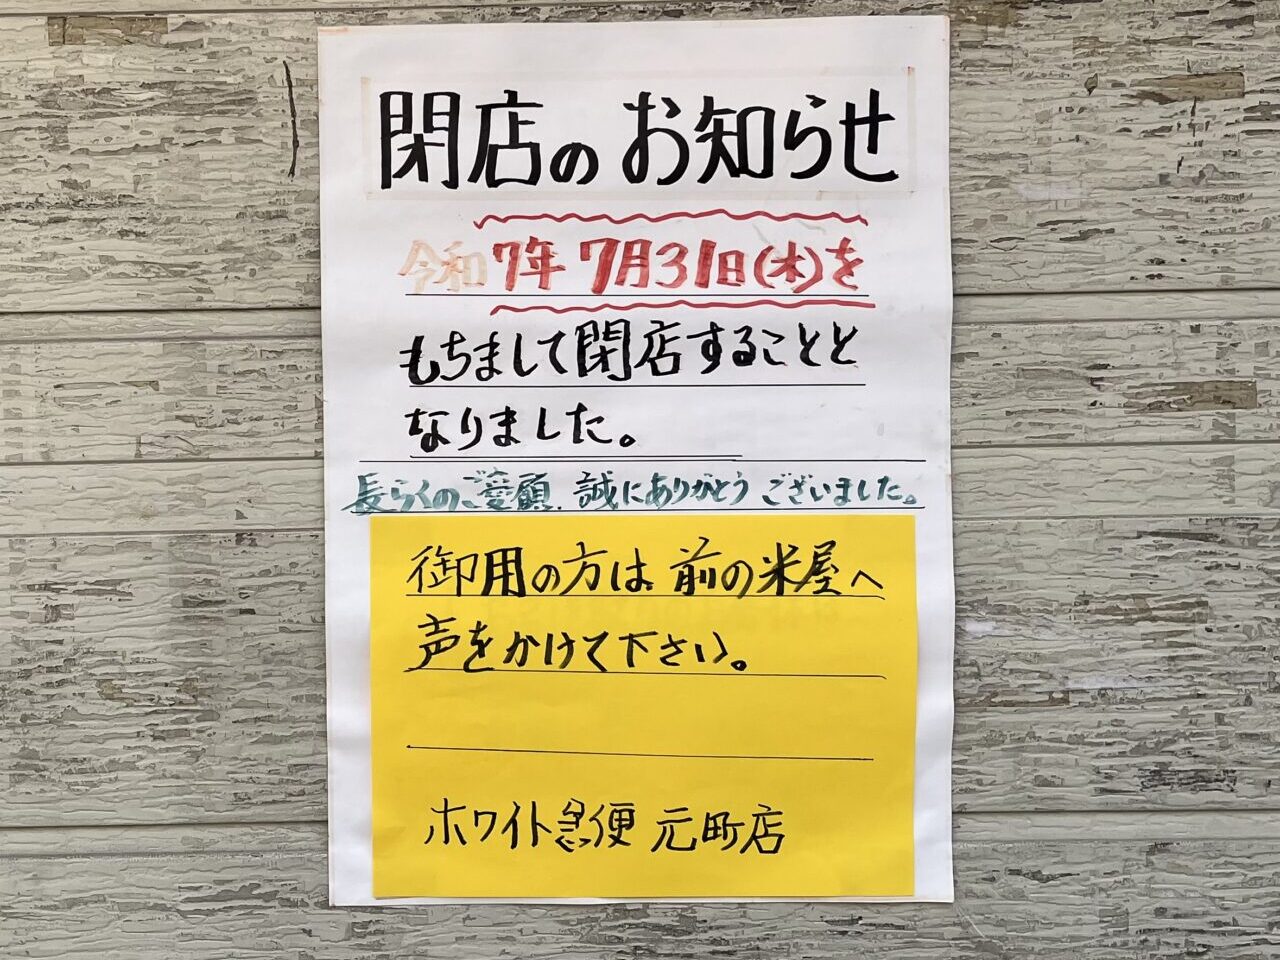 閉店のお知らせ
令和7年7月31日(木)を
もちまして閉店することと
なりました。
長らくのご愛顧、誠にありがとうございました。
御用の方は前の米屋へ
声をかけて下さい。
ホワイト急便 元町店